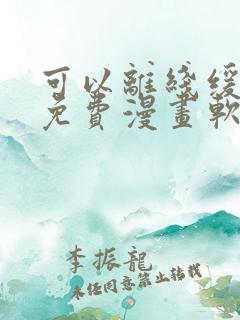 可以離綫緩
免費漫畫軟
李振龍
未经同意禁止转载